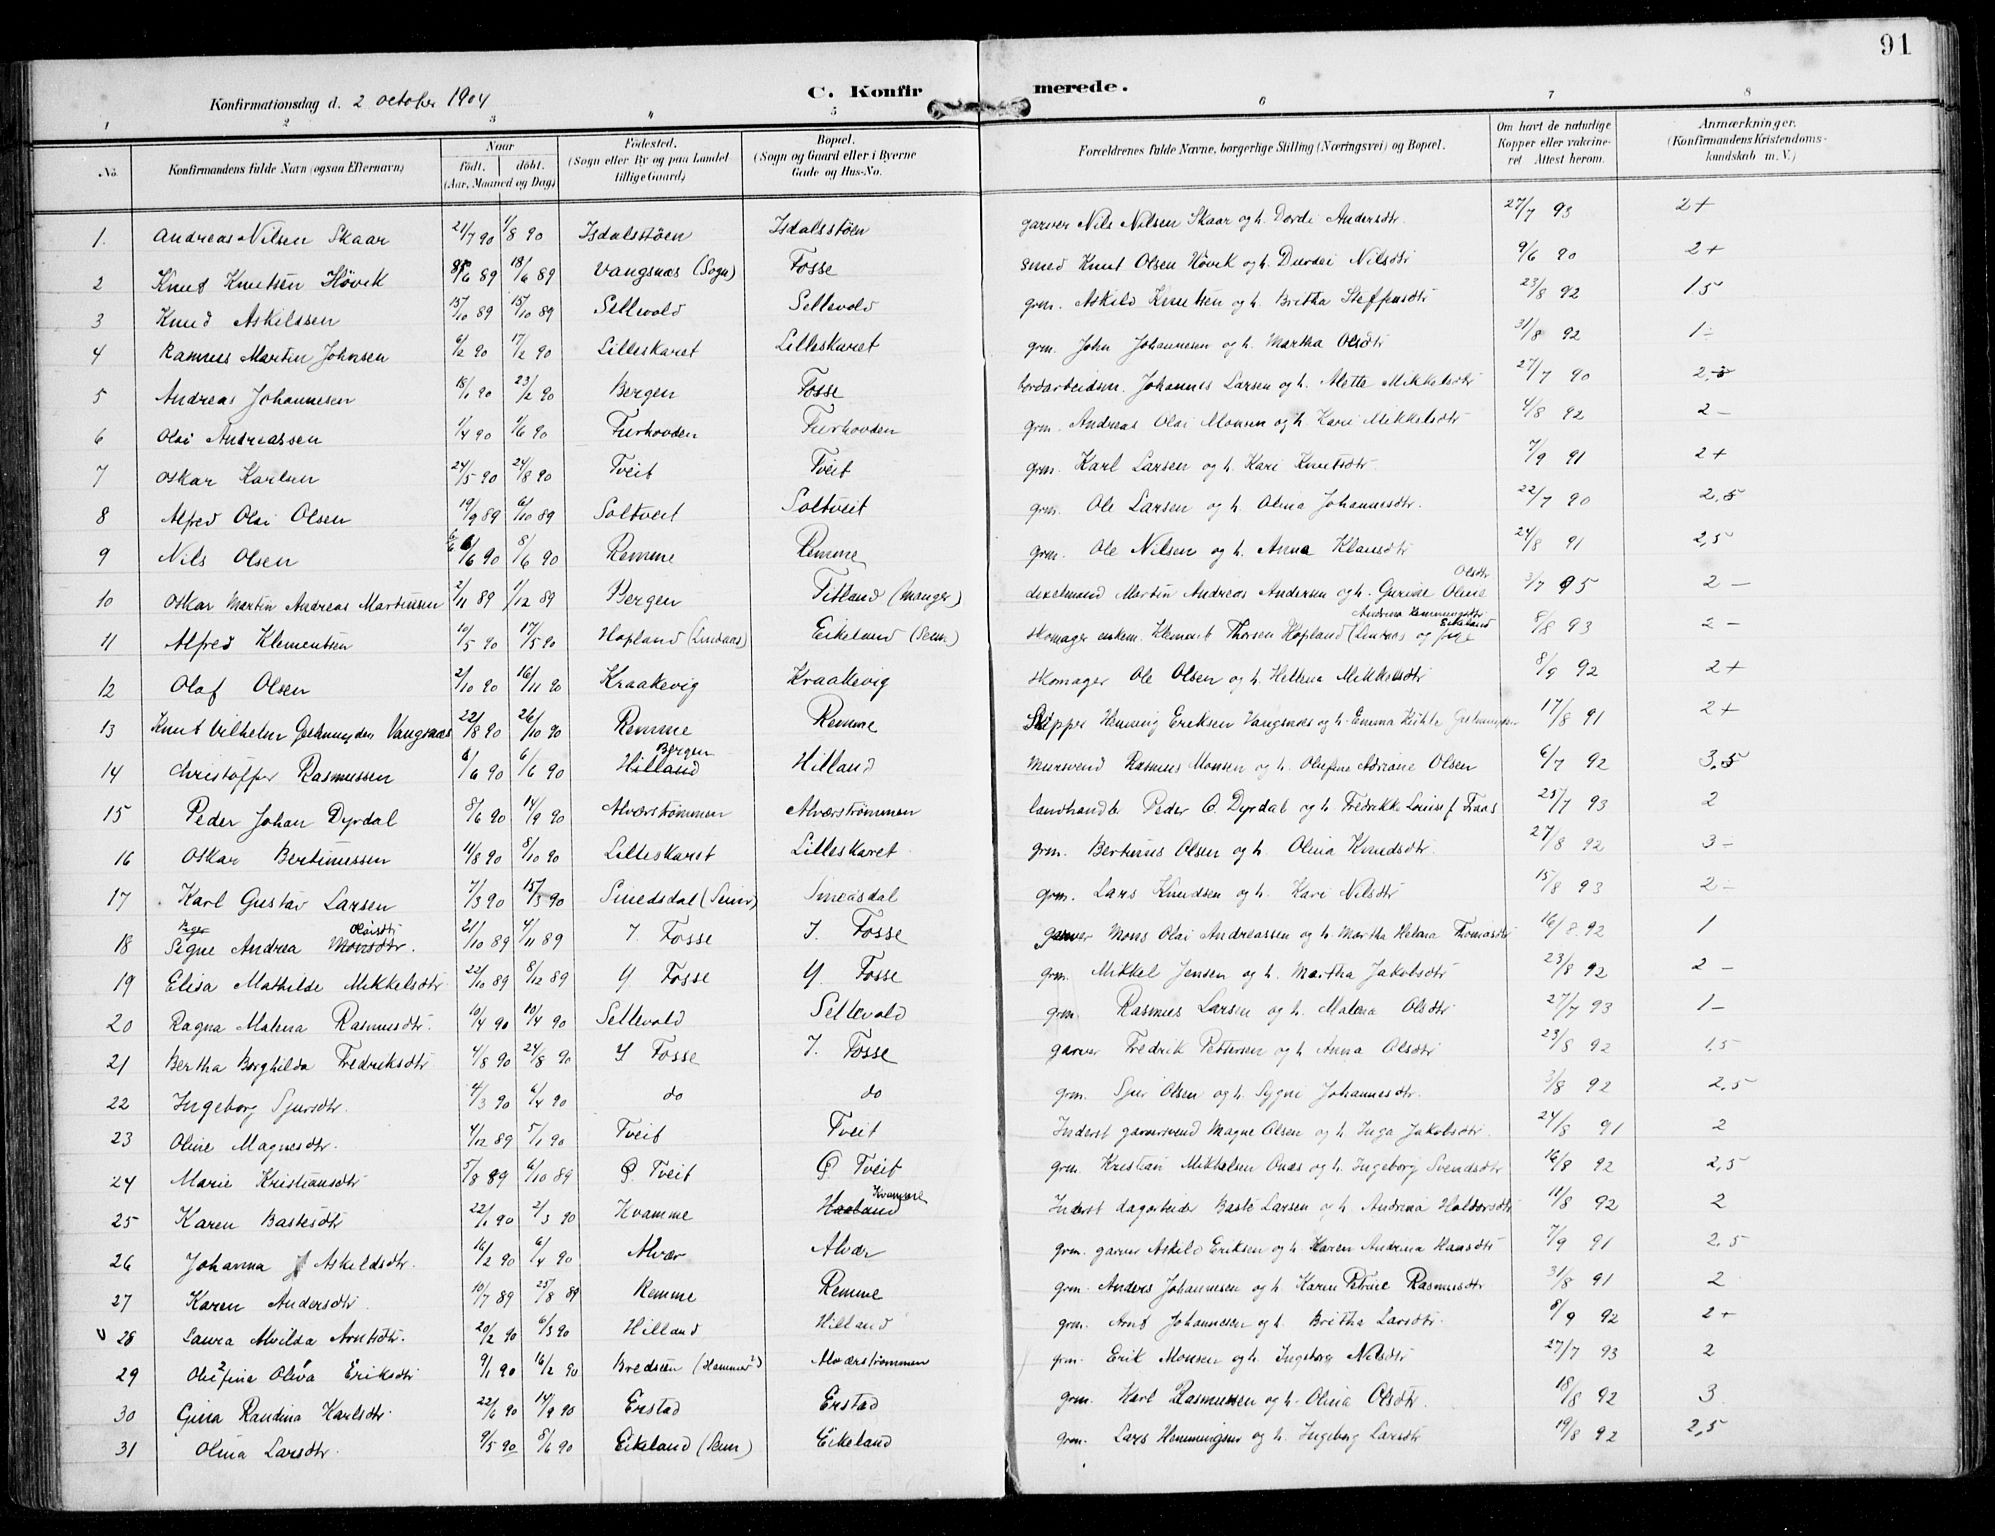 91
C. Konfirmerede.
Konfirmationsdag d. 2 october 1904
1 2 3 4 5 6 7 8
No. Konfirmandens fulde Navn (ogsaa Efternavn) Naar Födt. döbt. (Aar, Maaned og Dag) Födested. (Sogn eller By og paa Landet tillige Gaard) Bopæl. (Sogn og Gaard eller i Byerne Gade og Hus-No. Forældrenes fulde Navne, borgerlige Stilling (Næringsvei) og Bopæl. Om havt de naturlige Kopper eller vakcineret Attest herom. Anmærkninger. (Konfirmandens Kristendomskundskab m. V.)
1. Andreas Nilsen Skaar 21/7 90 1/8 90 Isdalsstöen Isdalsstöen garver Nils Nilsen Skaar og h. Dorde Andersdtr. 27/7 93 2+
2 Knut Knutsen Hövik 89 18/6 89 Vangsnæs (Sogn) Fosse Smed Knut Olsen Hövik og h. Durdei Nilsdtr 9/6 90 2+
3 Knud Askildsen 15/10 89 15/10 89 Sellevold Sellevold grm. Askild Knutsen og h. Britha Steffensdtr 23/8 92 1.5
4 Rasmus Martin Johnsen 6/2 90 17/2 90 Lilleskaret Lilleskaret grm. John Johannesen og h. Martha Olsdtr 31/8 92 1-
5 Andreas Johannesen 18/1 90 23/2 90 Bergen Fosse Johannes Larsen og h. Mette Mikkelsdtr 27/7 90
6 Olai Andreassen 1/4 90 1/6 90 Furhovden Furhovden grm. Andreas Olai Monsen og h. Kari Mikkelsdtr 4/8 92 2-
7 Oskar Karlsen 24/5 90 24/8 90 Tveit Tveit grm. Karl Larsen og h. Kari Knutsdtr. 7/9 91 2+
8 Alfred Olai Olsen 19/9 89 6/10 89 Soltveit Soltveit grm. Ole Larsen og h. Olina Johannesdtr. 22/7 90 2,5
9 Nils Olsen 6/6 90 8/6 90 Remme Remme grm. Ole Nilsen og h. Anna Klausdtr 24/8 91 2,5
10 Oskar Martin Andreas Martinsen 2/11 89 1/12 89 Bergen Fitland (Manger) Martin Andreas Andersen og h. Gurine Oline Olsdtr 3/7 95 2-
11 Alfred Klementsen 10/5 90 17/5 90 Hopland (Lindaas) Eikeland (Seim) skomager enkem. Klement Thorsen Hopland (Lindaas og Andrina Hemmingsdtr Eikeland 8/8 93 2-
12 Olaf Olsen 2/10 90 16/11 90 Kraakevig Kraakevig skomager Ole Olsen og h. Hellena Mikkelsdtr 8/9 92 2+
13 Knut Vilhelm Vangsnæs 22/8 90 26/10 90 Remme Remme Skipper Heming Eriksen Vangsnes og h. Emma 17/8 91 2+
14 Christoffer Rasmussen 6/6 90 6/6 90 Hilland Bergen Hilland Mursvend Rasmus Monsen og h. Olufine Adriane Olsen 6/7 92 3,5
15 Peder Johan Dyrdal 8/6 90 14/9 90 Alværströmmen Alværströmmen landhandler Peder O. Dyrdal og h. Fredrikke Louise f. Faas 25/7 93 2
16 Oskar Bertinussen 11/8 90 8/10 90 Lilleskaret Lilleskaret. grm. Bertinus Olsen og h. Olina Knudsdtr. 27/8 92 3-
17 Karl Gustav Larsen 7/3 90 15/3 90 Smedsdal (Seim) Smedsdal grm. Lars Knudsen og h. Kari Nilsdtr 15/8 93 2-
18 Signe Andrea Monsdtr. Olaisdtr 21/10 89 4/11 89 I. Fosse I. Fosse garver Mons Olai Andreassen og h. Martha Helena Thomasdtr 16/8 92 1
19 Elisa Mathilde Mikkelsdtr 22/10 89 8/12 89 Y. Fosse Y. Fosse grm. Mikkel Jensen og h. Martha Jakobsdtr 23/8 92 2-
20 Ragna Malena Rasmusdtr. 10/4 90 10/4 90 Sellevold Sellevold grm. Rasmus Larsen og h. Malena Olsdtr 27/7 93 1-
21 Bertha Borghilda Fredriksdtr 4/8 90 24/8 90 Y Fosse I. Fosse garver Fredrik Pettersen og h. Anna Olsdtr 23/8 92 1,5
22 Ingeborg Sjursdtr. 4/3 90 6/4 90 do do grm. Sjur Olsen og h. Sygne Johannesdtr. 3/8 92 2,5
23 Oline Magnesdtr. 4/12 89 5/1 90 Tveit Tveit Inderst garversvend Magne Olsen og h. Inga Jakobsdtr. 24/8 91 2
24 Marie Kristiansdtr 5/8 89 6/10 89 Ö. Tveit Ö. Tveit grm. Kristian Mikkelsen Onæs og h. Ingeborg Svendsdtr 16/8 92 2,5
25 Karen Bastesdtr 22/1 90 2/3 90 Kvamme Haaland Kvamme Inderst dagarbeider Baste Larsen og h. Andrina Haldorsdtr 11/8 92 2
26 Johanna Askildsdtr. 16/2 90 6/4 90 Alvær Alvær grm. garver Askild Eriksen og h. Karen Andrina Hansdtr 7/9 91 2,5
27 Karen Andersdtr. 10/7 89 25/8 89 Remme Remme grm. Anders Johannesen og h. Karen Petrine Rasmusdtr 31/8 91 2
v 28 Laura Alvilda Arntsdtr. 20/2 90 6/3 90 Hilland Hilland grm. Arnt Johannesen og h. Britha Larsdtr. 8/9 92 2+
29 Oliefina Oliva Eriksdtr 9/1 90 16/2 90 Bredseen (Hammer) Alværströmmen grm. Erik Monsen og h. Ingeborg Nilsdtr 27/7 93 2
30 Gina Randina Karlsdtr 22/6 90 14/9 90 Erstad Erstad grm. Karl Rasmussen og h. Olina Olsdtr. 18/8 92 3
31 Olina Larsdtr. 9/5 90 8/6 90 Eikeland (Seim) Eikeland grm. Lars Hemmingsen og h. Ingeborg Larsdtr 19/8 92 2,5